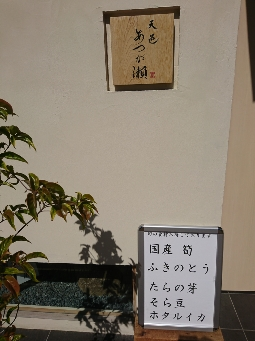 天邑
あつが瀬
国産 筍
ふきのとう
たらの芽
そら豆
ホタルイカ